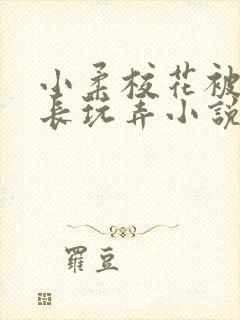 小柔校花被
長玩弄小説
羅豆